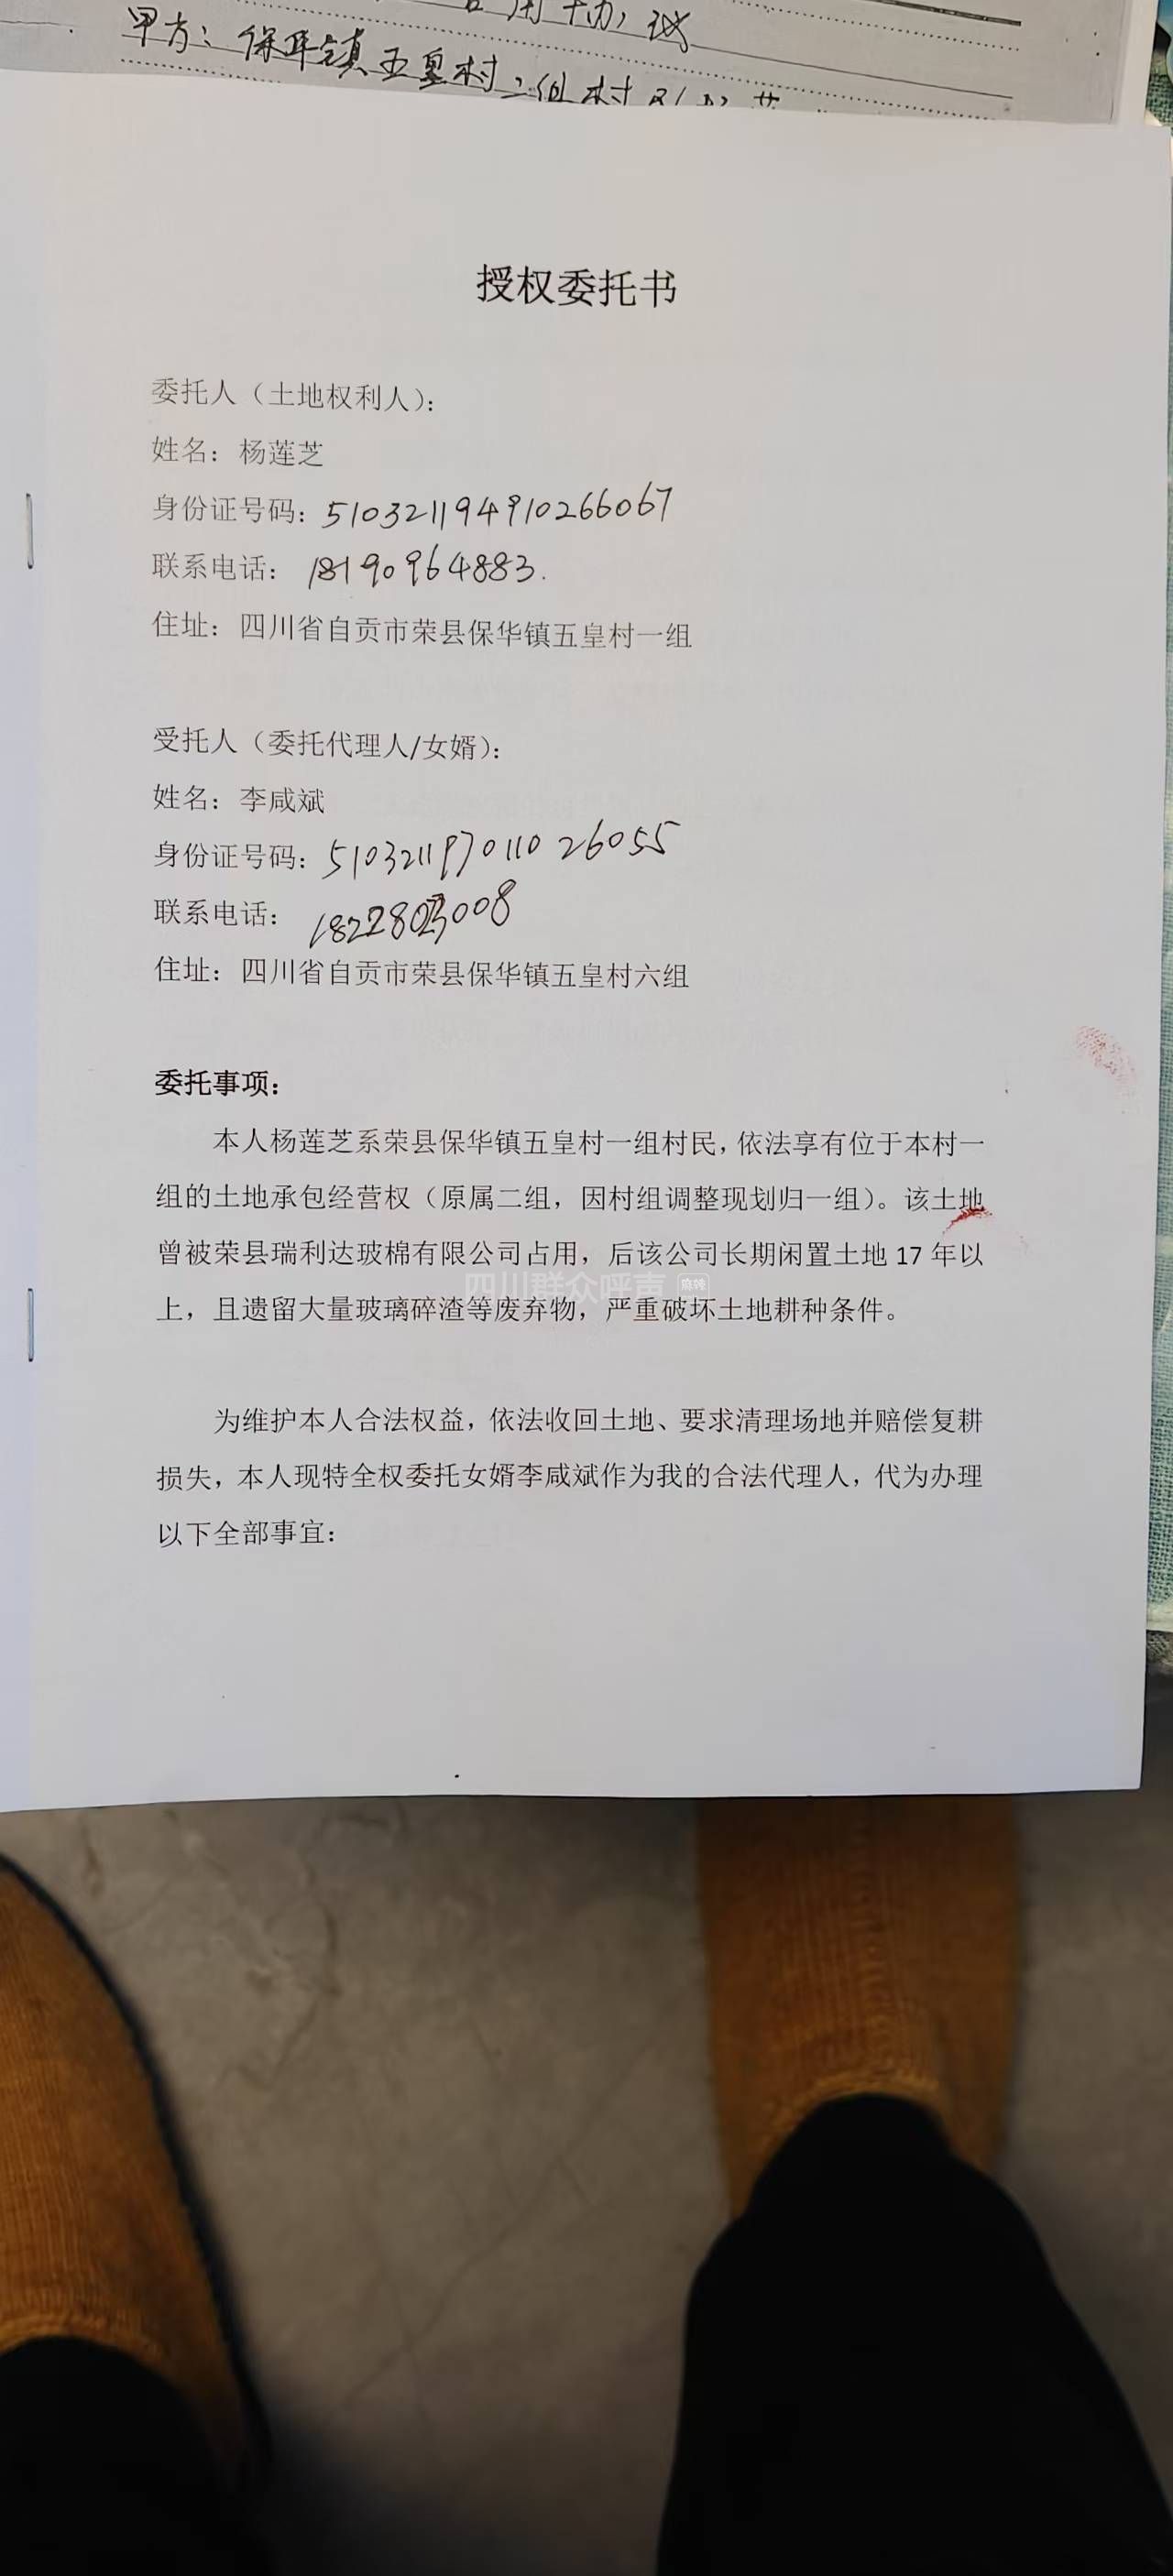 甲方：保华镇五皇村二组村
授权委托书
委托人（土地权利人）：
姓名：杨莲芝
身份证号码：510321194910266067
联系电话：18190964883.
住址：四川省自贡市荣县保华镇五皇村一组
受托人（委托代理人/女婿）：
姓名：李咸斌
身份证号码：510321197011026055
联系电话：
住址：四川省自贡市荣县保华镇五皇村六组
委托事项：
本人杨莲芝系荣县保华镇五皇村一组村民，依法享有位于本村一
组的土地承包经营权（原属二组，因村组调整现划归一组）。该土地
曾被荣县瑞利达玻棉有限公司占用，后该公司长期闲置土地 17 年以
四川群众呼声
上，且遗留大量玻璃碎渣等废弃物，严重破坏土地耕种条件。
为维护本人合法权益，依法收回土地、要求清理场地并赔偿复耕
损失，本人现特全权委托女婿李咸斌作为我的合法代理人，代为办理
以下全部事宜：